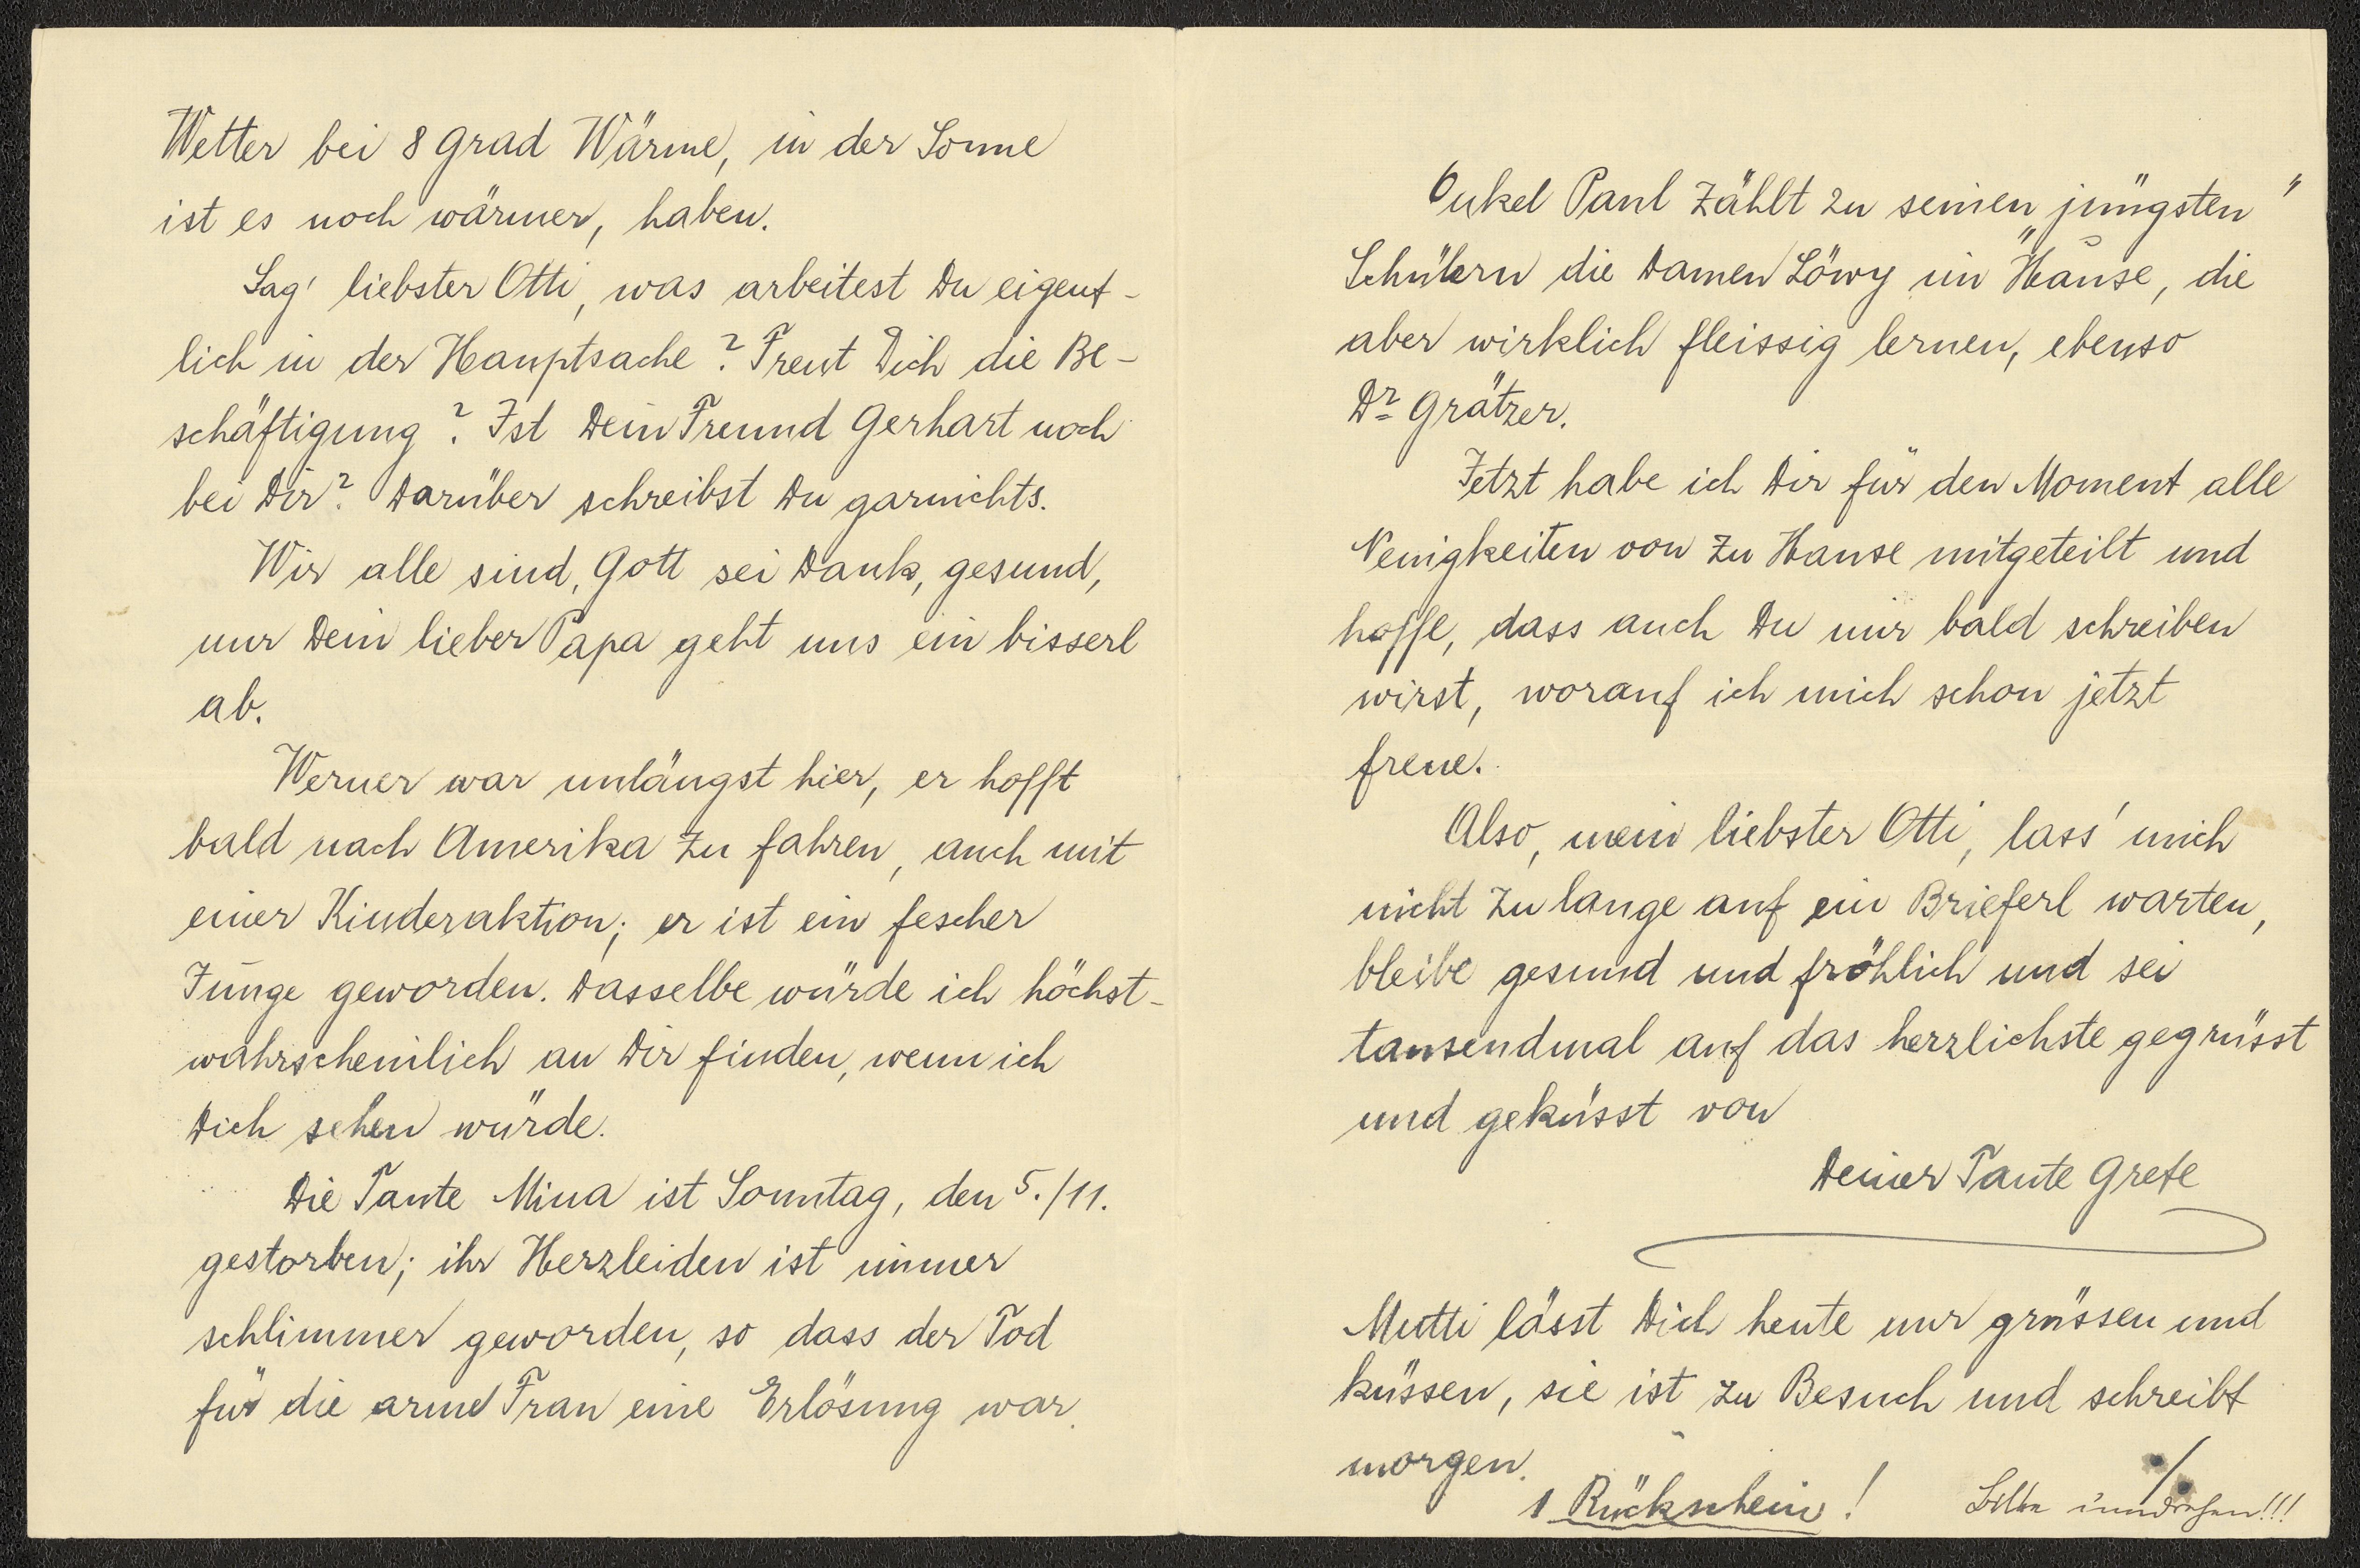 Wetter bei 8 Grad Wärme, in der Sonne
ist es noch wärmer, haben.
Sag' liebster Otti, was arbeitest Du eigent-
lich in der Hauptsache? Freut Dich die Be-
schäftigung? Ist Dein Freund Gerhart noch
bei Dir? Darüber schreibst Du garnichts.
Wir alle sind, Gott sei Dank, gesund,
nur Dein lieber Papa geht uns ein bisserl
ab.
Werner war unlängst hier, er hofft
bald nach Amerika zu fahren, auch mit
einer Kinderaktion; er ist ein fescher
Junge geworden. Dasselbe würde ich höchst-
wahrscheinlich an Dir finden, wenn ich
Dich sehen würde.
Die Tante Mina ist Sonntag, den 5./11.
gestorben; ihr Herzleiden ist immer
schlimmer geworden, so dass der Tod
für die arme Frau eine Erlösung war.
Onkel Paul zählt zu seinen „jüngsten"
Schülern die Damen Löwy im Hause, die
aber wirklich fleissig lernen, ebenso
Dr Grätzer.
Jetzt habe ich Dir für den Moment alle
Neuigkeiten von zu Hause mitgeteilt und
hoffe, dass auch Du mir bald schreiben
wirst, worauf ich mich schon jetzt
freue.
Also, mein liebster Otti, lass' mich
nicht zu lange auf ein Brieferl warten,
bleibe gesund und fröhlich und sei
tausendmal auf das herzlichste gegrüsst
und geküsst von
Deiner Tante Grete
Mutti lässt Dich heute nur grüssen und
küssen, sie ist zu Besuch und schreibt
morgen. ./.
1 Rückschein! Bitte umdrehen!!!